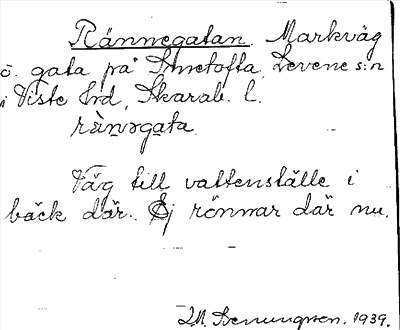 Rännegatan. Markväg
o. gata på Smetofta, Levene s:n
i Viste hrd, Skarab. l.
rànəgata.
Väg till vattenställe i
bäck där. Ej rönnar där nu.
1939.